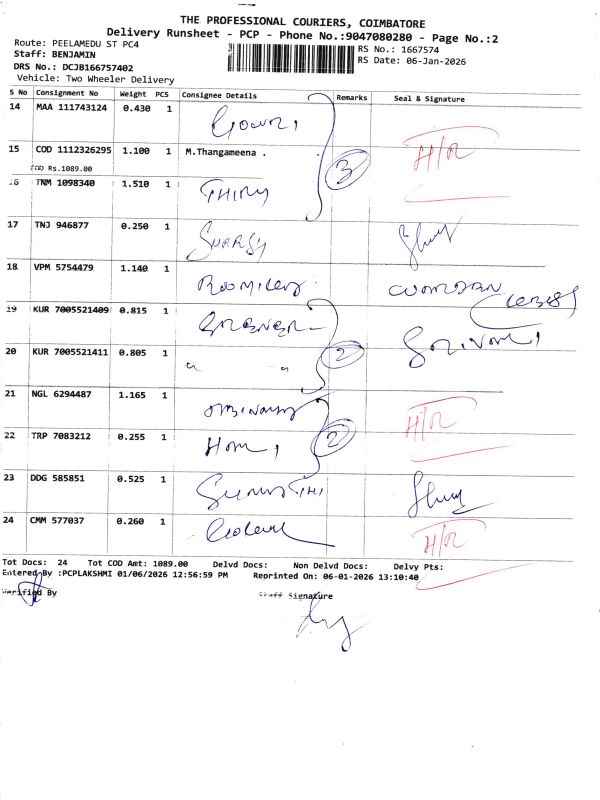 THE PROFESSIONAL COURIERS, COIMBATORE
Delivery Runsheet - PCP - Phone No.:9047080280 - Page No.:2
Route: PEELAMEDU ST PC4
RS No.: 1667574
Staff: BENJAMIN
RS Date: 06-Jan-2026
DRS No.: DCJB166757402
Vehicle: Two Wheeler Delivery
S No Consignment No Weight PCS Consignee Details Remarks Seal & Signature
14 MAA 111743124 0.430 1 Gowri
15 COD 1112326295 1.100 1 M.Thangameena . 3 H/R
COD Rs.1089.00
16 TNM 1098340 1.510 1 THIRU
17 TNJ 946877 0.250 1
18 VPM 5754479 1.140 1
19 KUR 7005521409 0.815 1
20 KUR 7005521411 0.805 1 2
21 NGL 6294487 1.165 1 H/R
22 TRP 7083212 0.255 1 2
23 DDG 585851 0.525 1
24 CMM 577037 0.260 1 H/R
Tot Docs: 24 Tot COD Amt: 1089.00 Delvd Docs: Non Delvd Docs: Delvy Pts:
Entered By :PCPLAKSHMI 01/06/2026 12:56:59 PM Reprinted On: 06-01-2026 13:10:40
Verified By Staff Signature